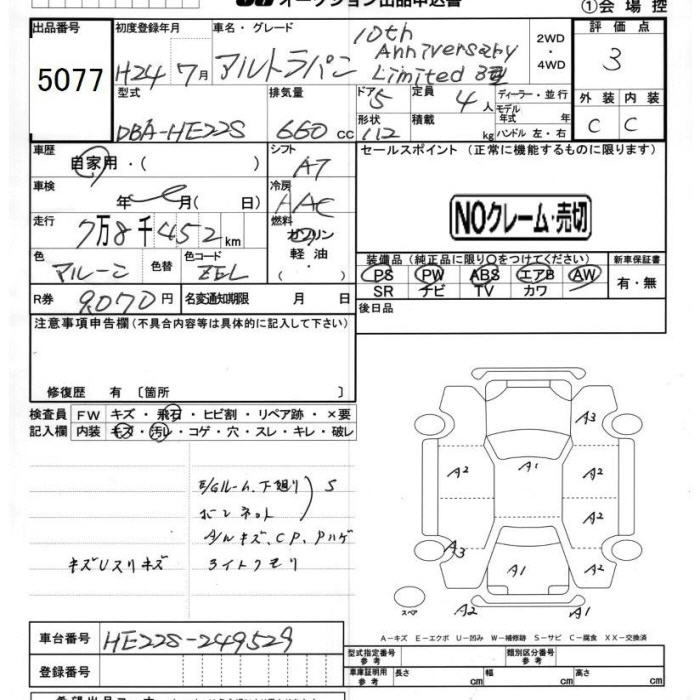 オークション出品申込書
①会場控
出品番号
5077
初度登録年月
H24 7月
車名・グレード
アルトラパン 10th Anniversary Limited 3型
2WD
・
4WD
評価点
3
外装 内装
C C
型式
DBA-HE22S
排気量
660cc
ドア
5
定員
4人
形状
112
積載
kg
ディーラー・並行
モデル年式 年
ハンドル 左・右
車歴
自家用・( )
シフト
A7
車検
年 月( 日)
冷房
AAC
走行
7万8千452km
燃料
ガソリン
軽油
・( )
色
マルーン
色替
色コード
ZEL
R券
9070円
名変通知期限 月 日
セールスポイント (正常に機能するものに限ります)
NOクレーム・売切
装備品(純正品に限り○をつけてください)
PS PW ABS エアB AW
SR ナビ TV カワ
新車保証書
有・無
後日品
注意事項申告欄(不具合内容等は具体的に記入して下さい)
修復歴 有 〔箇所 〕
検査員記入欄
FW キズ・飛石・ヒビ割・リペア跡・×要
内装 キズ・汚レ・コゲ・穴・スレ・キレ・破レ
E/Gルーム、下廻り
ボンネット
S
A/Wキズ、CP、Pハゲ
キズUスリキズ
ライトクモリ
A3
A2
A1
A2
A2
A2
A3
A1
A2
A1
スペア
A-キズ E-エクボ U-凹み W-補修跡 S-サビ C-腐食 XX-交換済
車台番号
HE22S-249529
登録番号
型式指定番号
参考
類別区分番号
参考
車庫証明用
参考
長さ cm
幅 cm
高さ cm